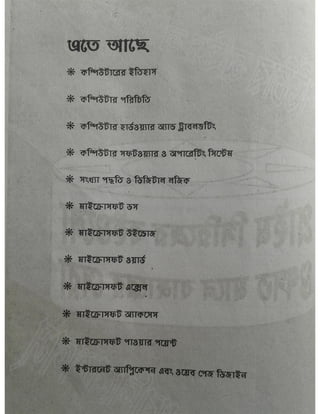 এতে আছে
* কম্পিউটারের ইতিহাস
* কম্পিউটার পরিচিতি
* কম্পিউটার হার্ডওয়্যার অ্যান্ড ট্রাবলশুটিং
* কম্পিউটার সফটওয়্যার ও অপারেটিং সিস্টেম
* সংখ্যা পদ্ধতি ও ডিজিটাল লজিক
* মাইক্রোসফট ডস
* মাইক্রোসফট উইন্ডোজ
* মাইক্রোসফট ওয়ার্ড
* মাইক্রোসফট এক্সেল
* মাইক্রোসফট অ্যাকসেস
* মাইক্রোসফট পাওয়ার পয়েন্ট
* ইন্টারনেট অ্যাপ্লিকেশন এবং ওয়েব পেজ ডিজাইন